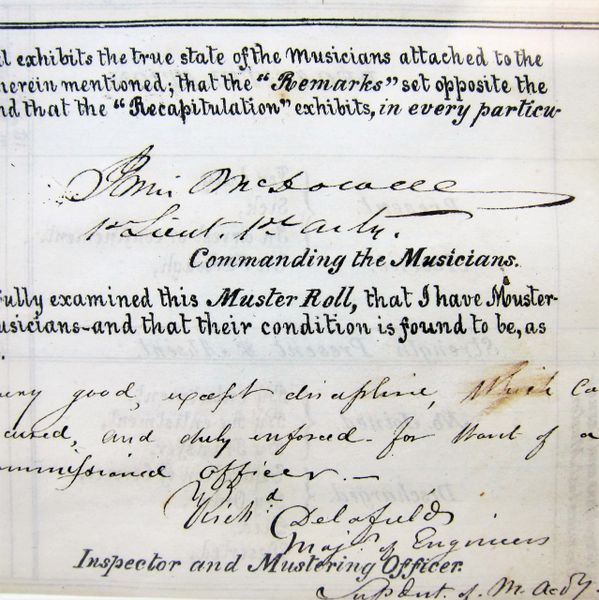 ll exhibits the true state of the Musicians attached to the
herein mentioned; that the "Remarks" set opposite the
nd that the "Recapitulation" exhibits, in every particu-
Irvin McDowell
1st Lieut. 1st Arty.
Commanding the Musicians.
fully examined this Muster Roll, that I have Muster-
usicians—and that their condition is found to be, as
very good, except discipline, which ca
cured, and duly enforced for want of a
ommissioned officer—
Richd Delafield
Majr of Engineers
Inspector and Mustering Officer.
Supdent. of M. Acdy.